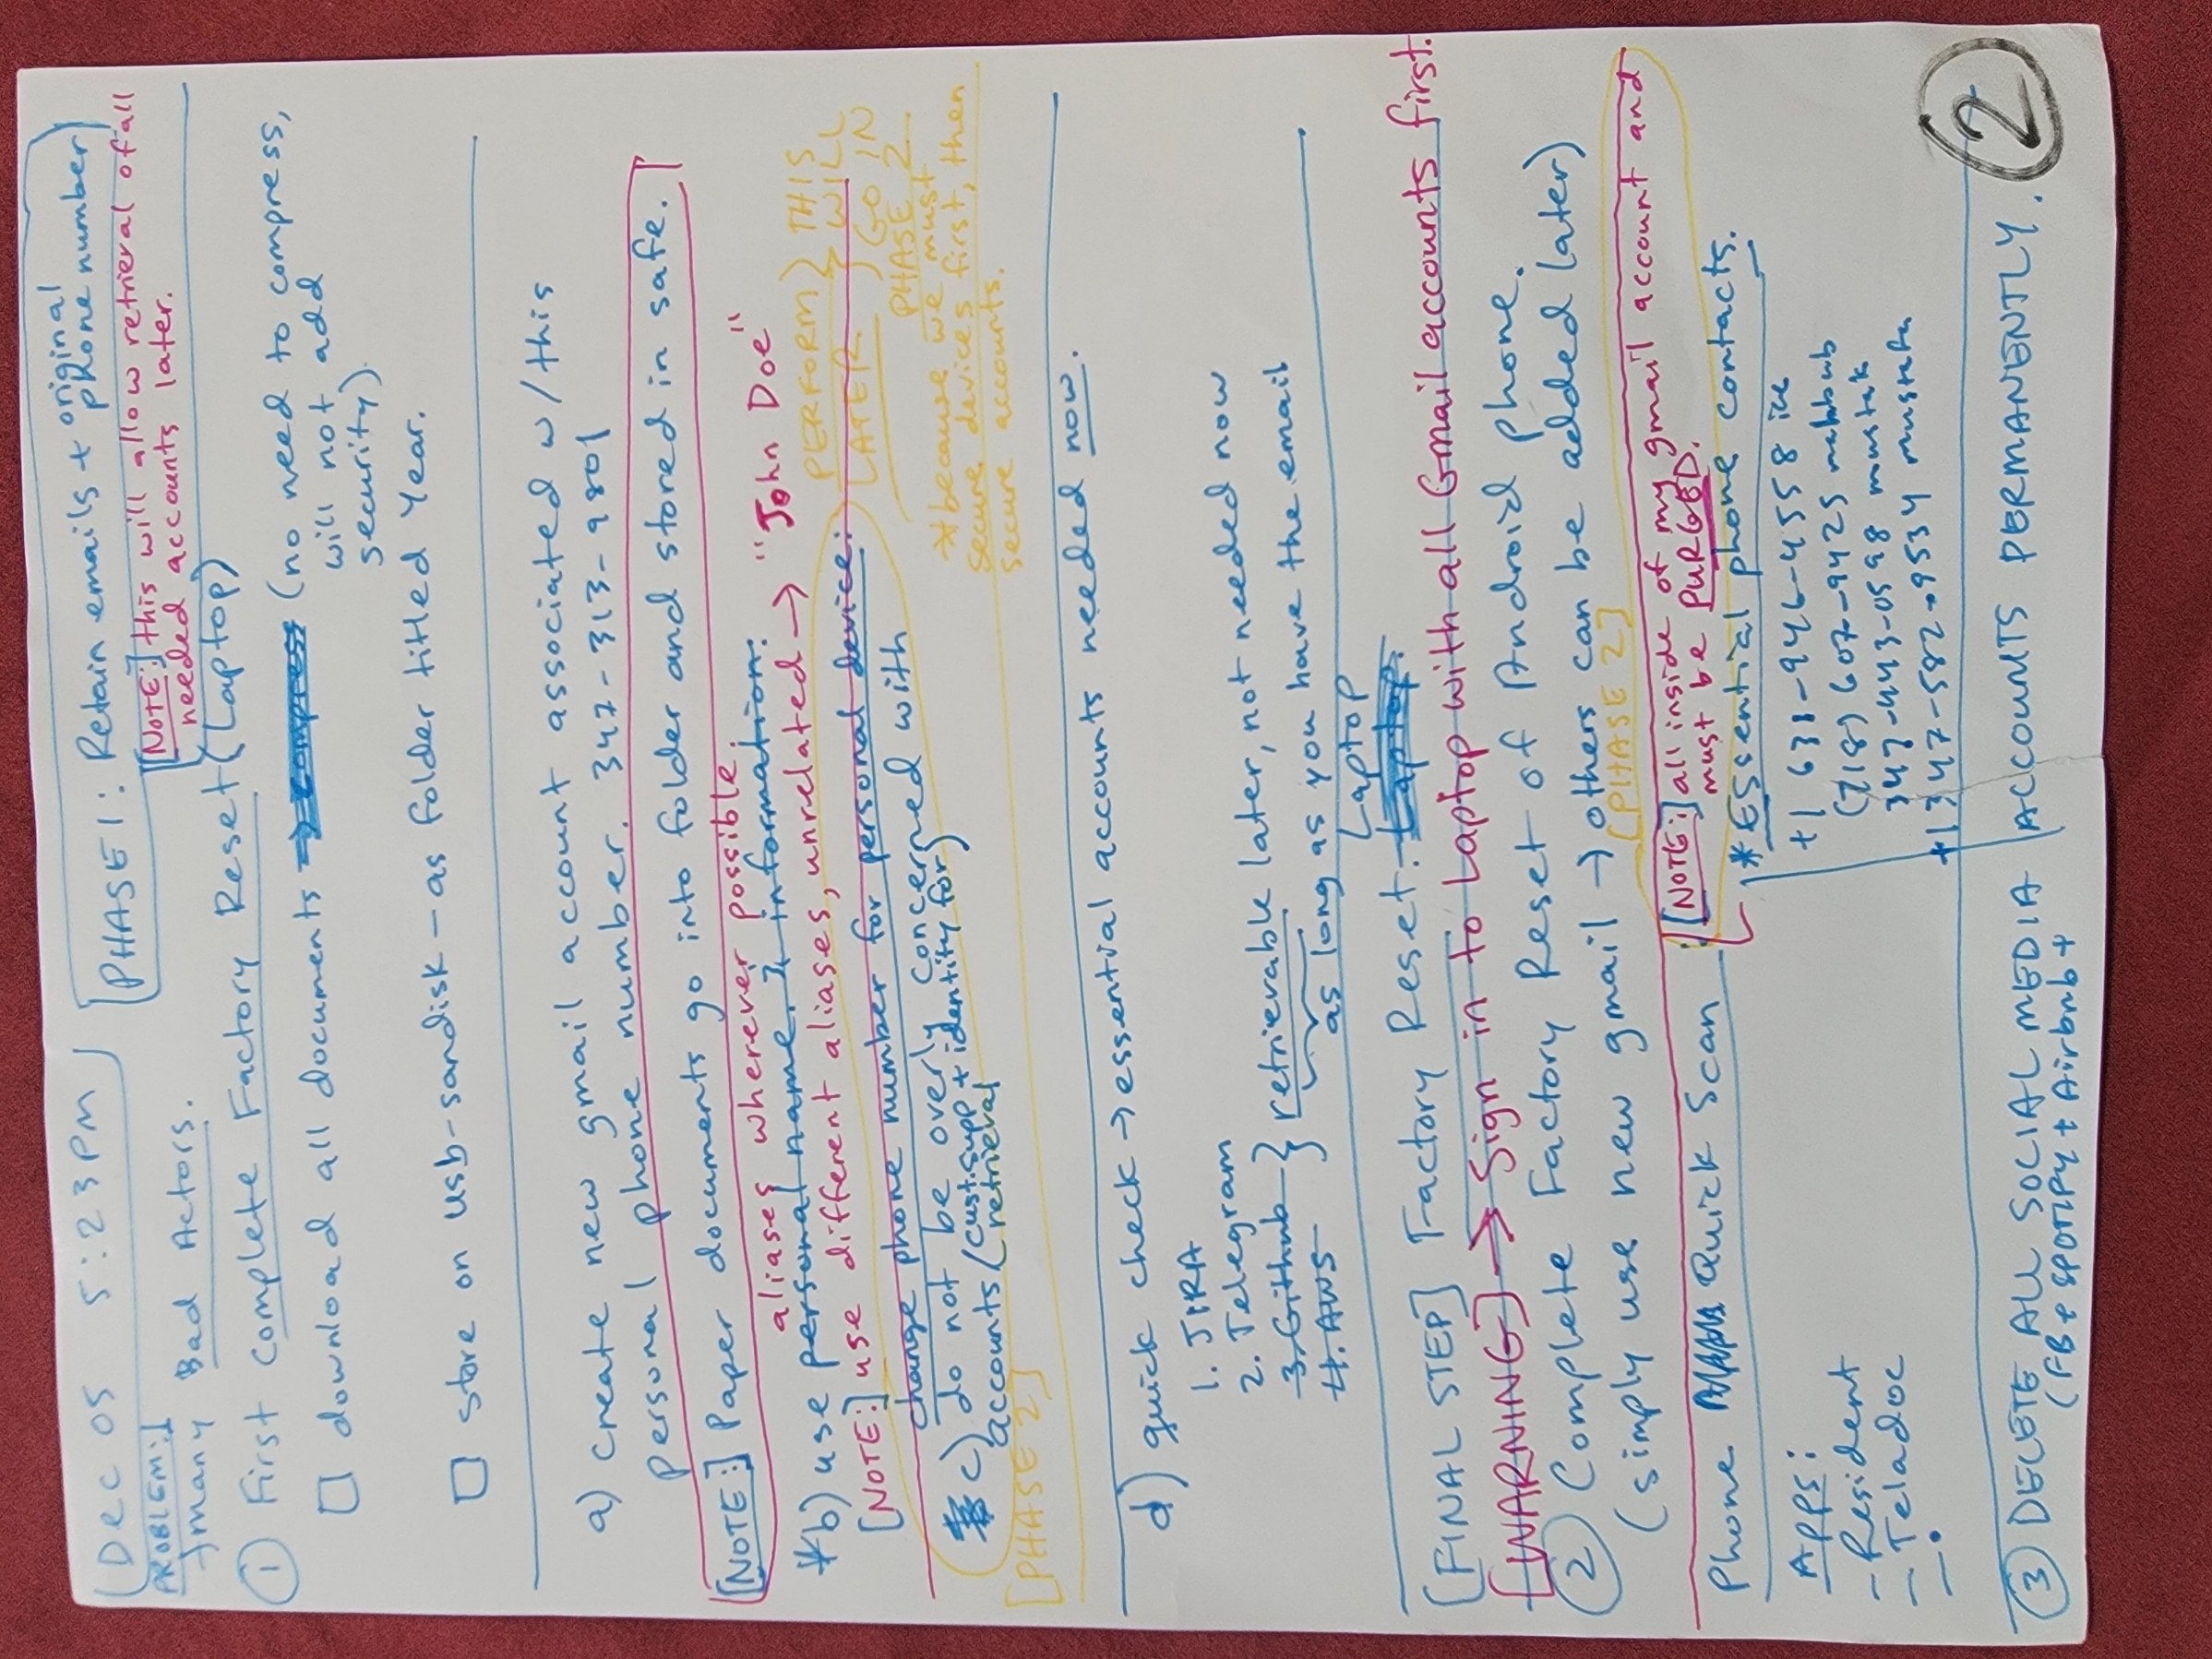 Dec 05 5:23PM
[PHASE 1: Retain emails + original phone number]
[NOTE:] this will allow retrieval of all
needed accounts later.
PROBLEM:
→ many Bad Actors.
① First Complete Factory Reset (Laptop)
☐ download all documents → compress (no need to compress,
will not add
security).
☐ store on usb-sandisk — as folder titled Year.
a) create new gmail account associated w/this
personal phone number. 347-313-9801
[NOTE:] Paper documents go into folder and stored in safe.
aliases wherever possible.
*b) use personal name + information.
[NOTE:] use different aliases, unrelated → "John Doe"
change phone number for personal device.
PERFORM THIS
LATER WILL
GO IN
PHASE 2
c) do not be overly concerned with
accounts/(cust.supp + identity for)
retrieval
→ because we must
secure devices first, then
secure accounts.
[PHASE 2]
d) quick check → essential accounts needed now.
1. JIRA
2. Telegram
3. Github } retrievable later, not needed now
4. AWS as long as you have the email
[FINAL STEP] Factory Reset. Laptop
Laptop
[WARNING] → Sign in to Laptop with all Gmail accounts first.
② Complete Factory Reset of Android phone.
(simply use new gmail → others can be added later)
[PHASE 2]
[NOTE:] all inside of my gmail account and
must be PURGED.
Phone Quick Scan
* Essential phone contacts.
APPS:
- Resident
- Teladoc
- •
+1 631-946-4558
(718) 607-9425 mahbub
347-443-0598 mustak
+1 347-582-9534 mustafa
③ DELETE ALL SOCIAL MEDIA ACCOUNTS PERMANENTLY.
(FB + SPOTIFY + Airbnb +
2